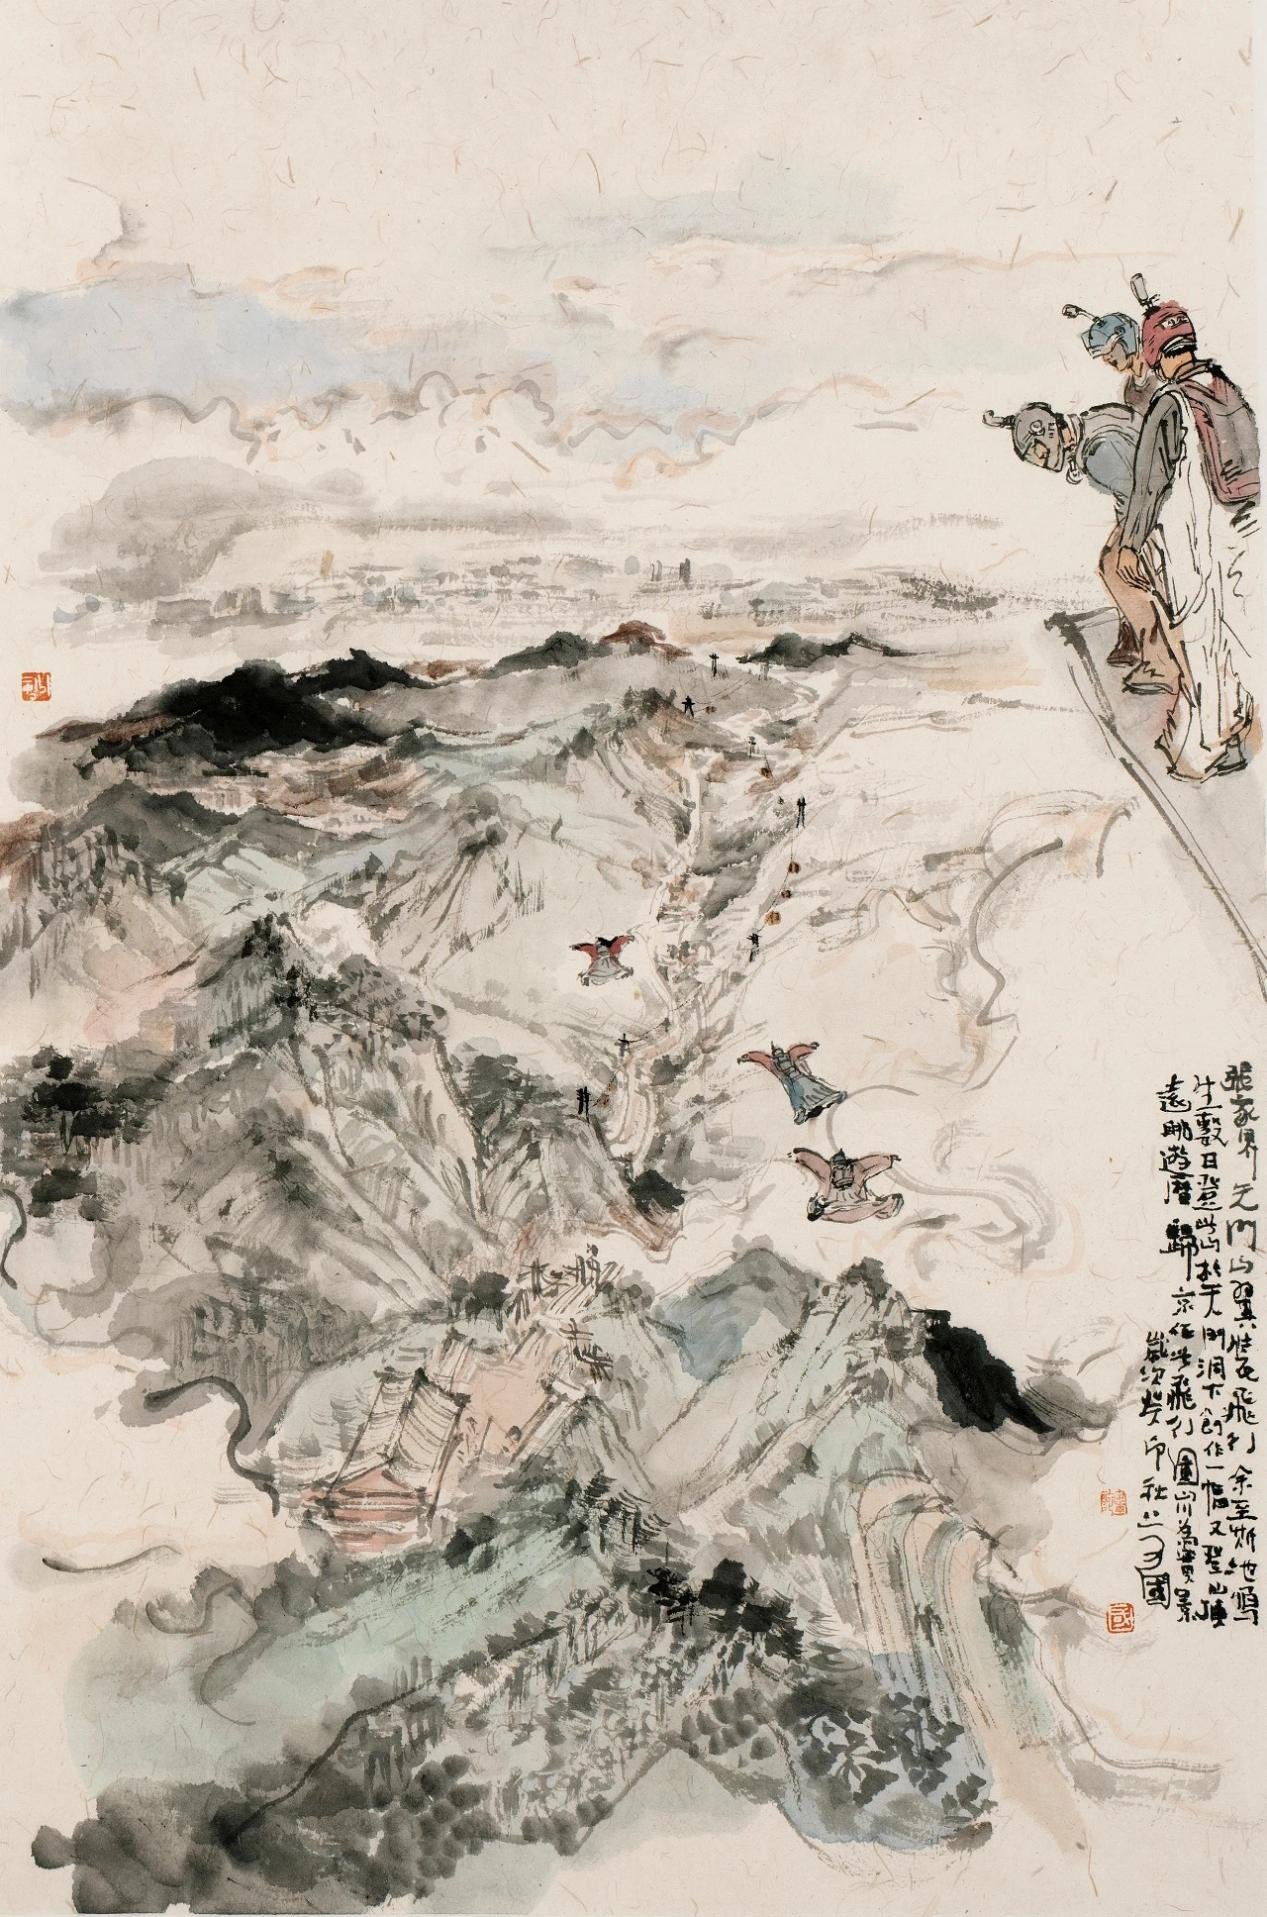 張家界天門山翼裝飛行余至斯地寫
生數日登此山於天門洞下創作一幅又登山頂
遠眺遊歷歸京作此飛行圖以為實景
歲次癸卯秋 國